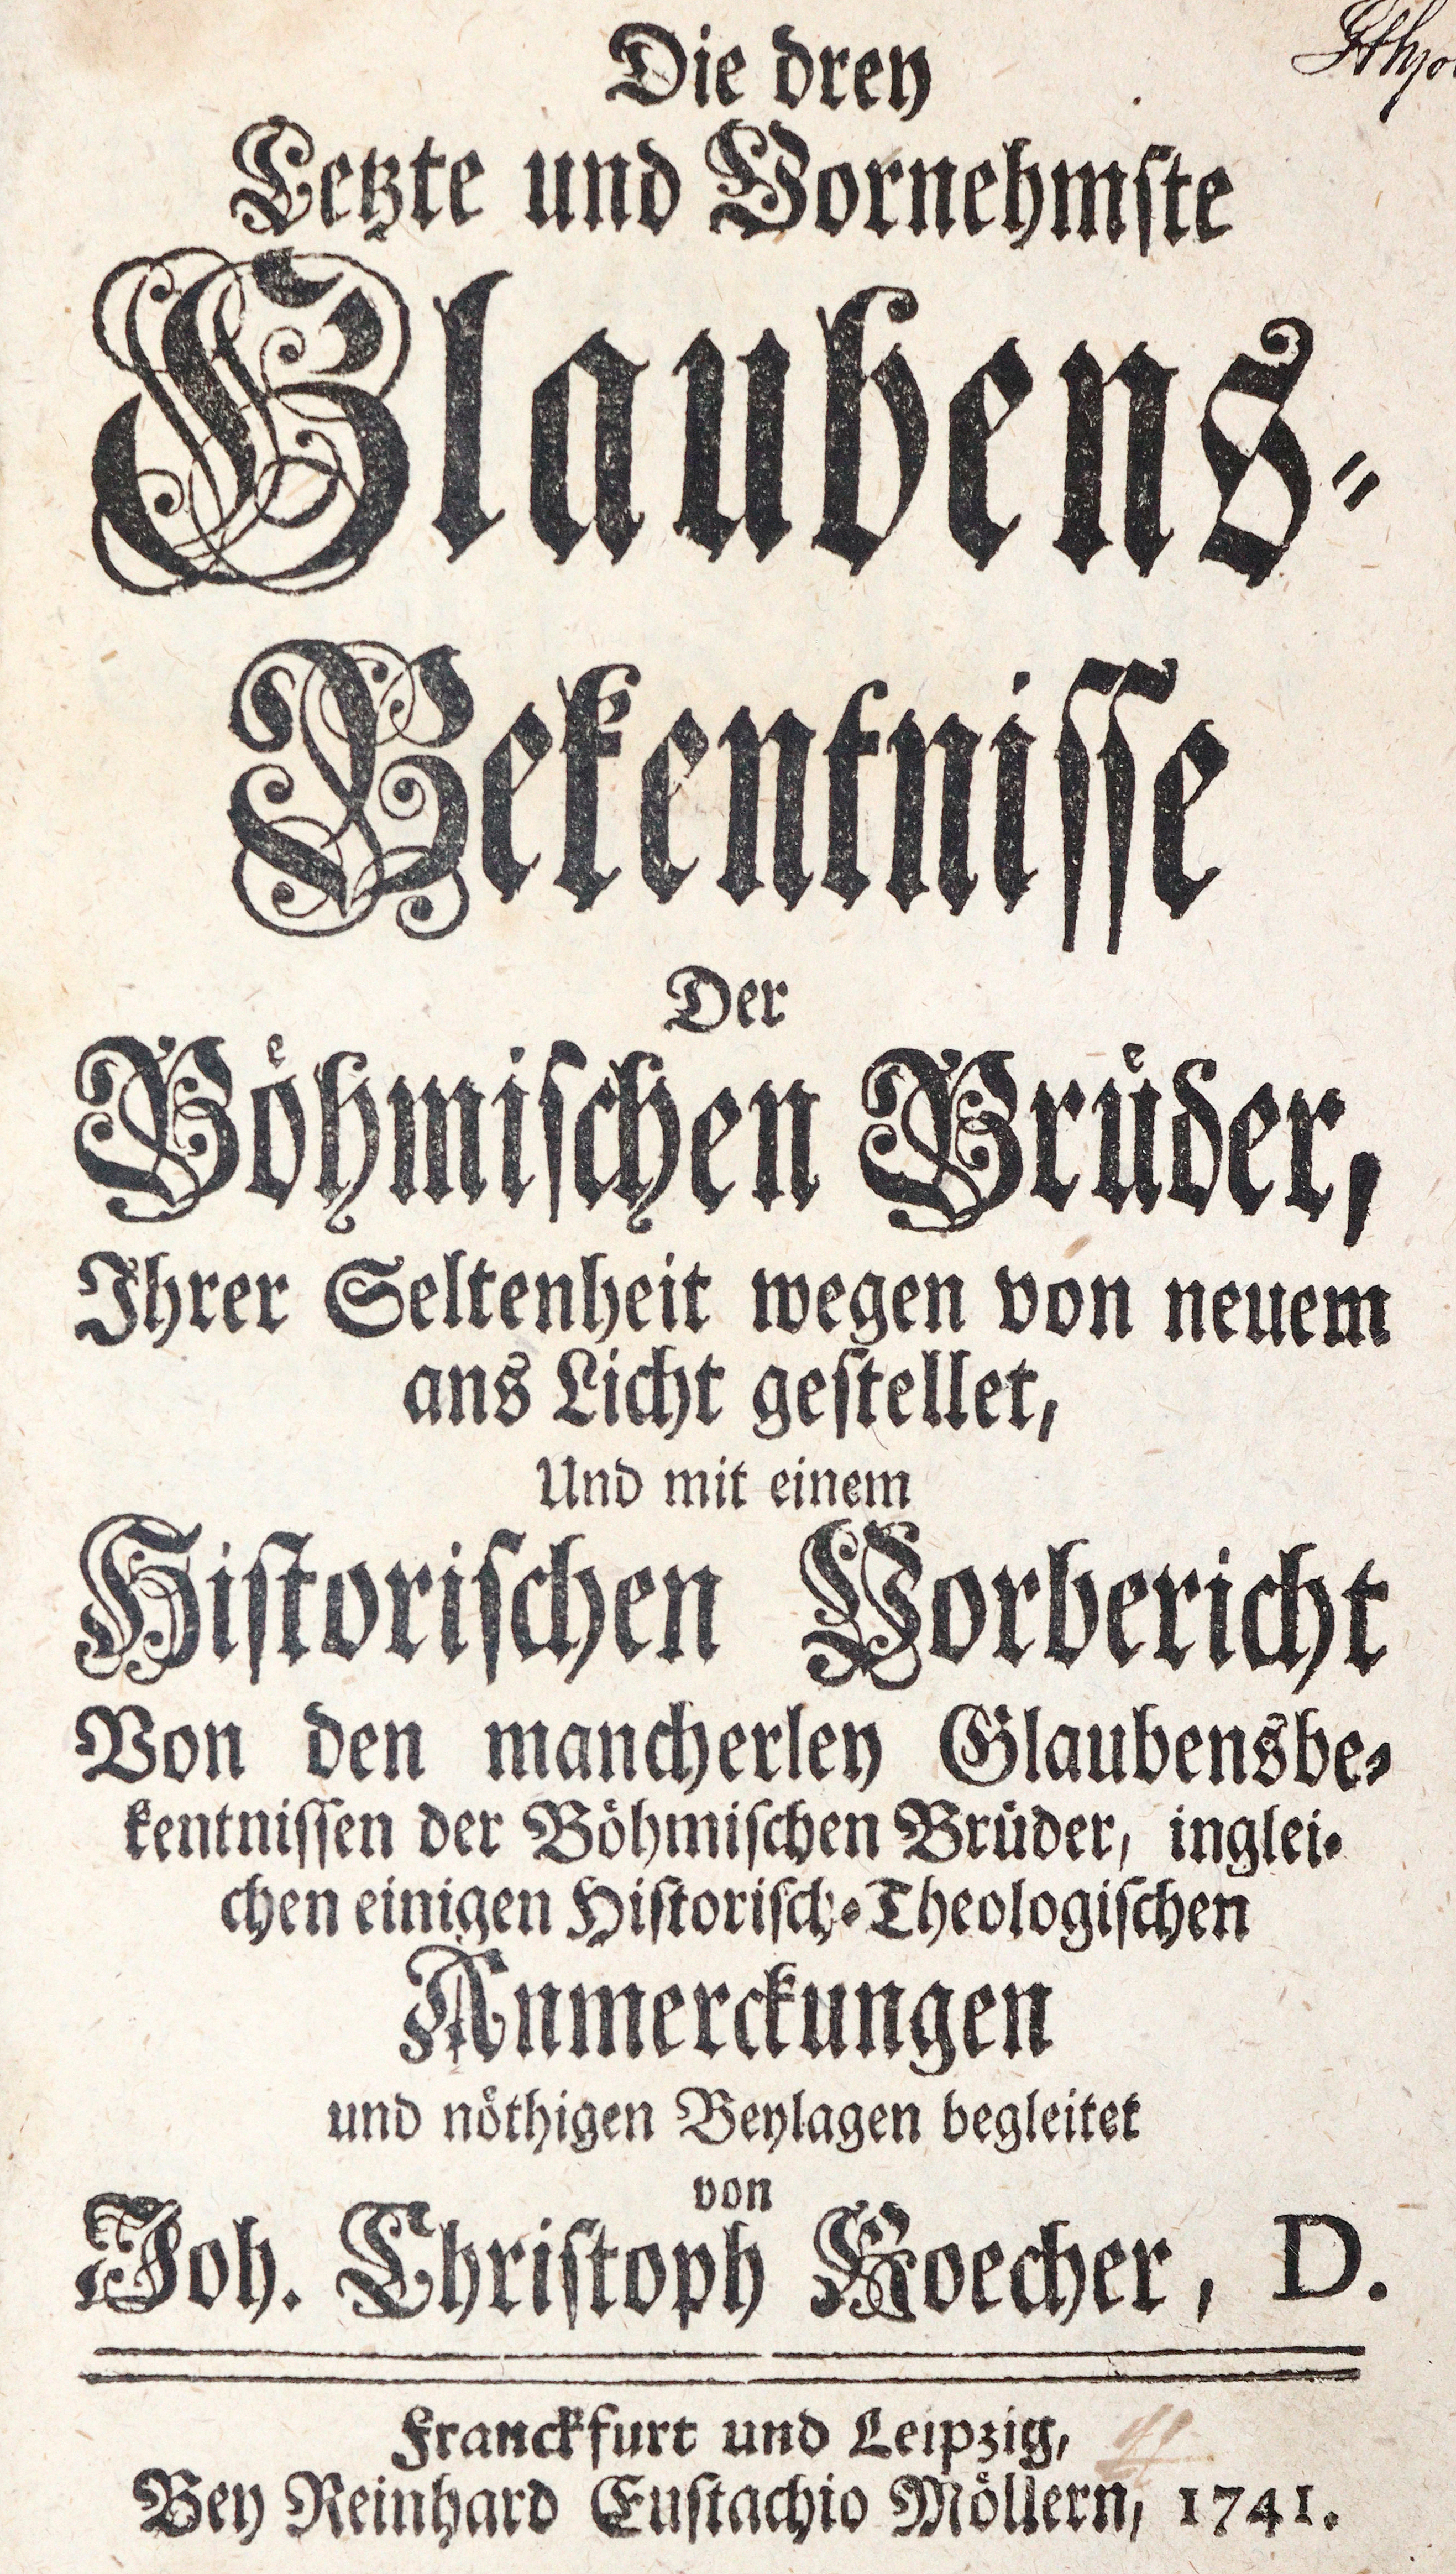 Die drey
Letzte und Vornehmste
Glaubens-
Bekentnisse
Der
Böhmischen Brüder,
Ihrer Seltenheit wegen von neuem
ans Licht gestellet,
Und mit einem
Historischen Vorbericht
Von den mancherley Glaubensbe-
kentnissen der Böhmischen Brüder, inglei-
chen einigen Historisch-Theologischen
Anmerckungen
und nöthigen Beylagen begleitet
von
Joh. Christoph Koecher, D.
Franckfurt und Leipzig,
Bey Reinhard Eustachio Möllern, 1741.